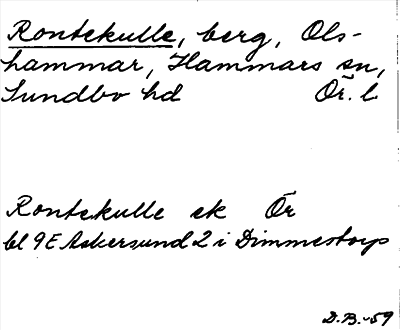 Rontekulle, berg, Ols-
hammar, Hammars sn,
Sundbo hd Ör. l
Rontekulle ek Ör
bl 9E Askersund 2 i Dimmestorp
D.B.-59